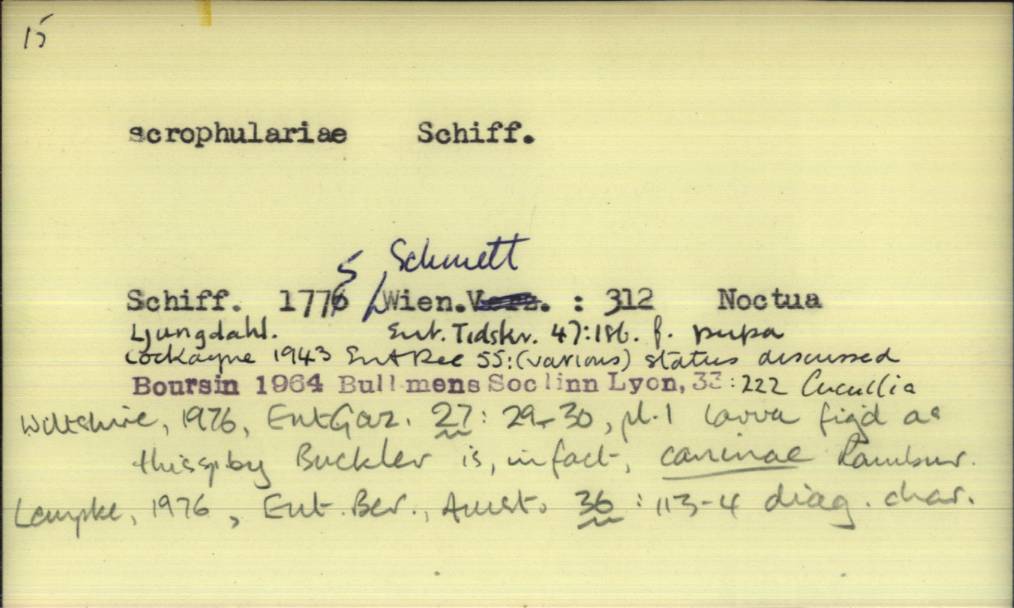 15
scrophulariae Schiff.
5 Schmett
Schiff. 1776 Wien. Verz. : 312 Noctua
Ljungdahl. Ent. Tidskr. 47:186. f. pupa
Cockayne 1943 Ent Rec 55:(various) status discussed
Boursin 1964 Bull mens Soc linn Lyon, 33:222 Cucullia
Wiltshire, 1976, Ent Gaz. 27: 29-30, pl.1 larva figd as
this sp by Buckler is, in fact, caninae Rambur.
Lempke, 1976, Ent. Ber., Amst. 36: 113-4 diag. char.